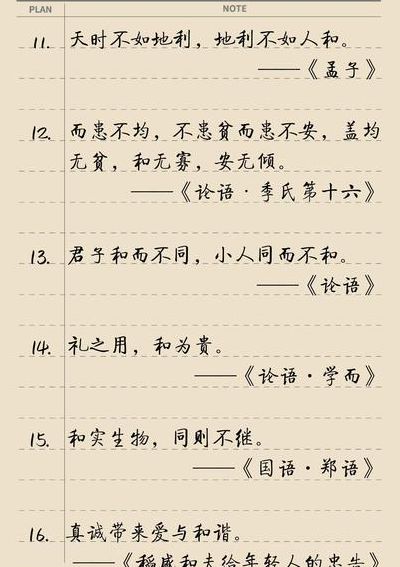 PLAN NOTE
11. 天时不如地利，地利不如人和。
——《孟子》
12. 而患不均，不患贫而患不安，盖均
无贫，和无寡，安无倾。
——《论语·季氏第十六》
13. 君子和而不同，小人同而不和。
——《论语》
14. 礼之用，和为贵。
——《论语·学而》
15. 和实生物，同则不继。
——《国语·郑语》
16. 真诚带来爱与和谐。
——《稻盛和夫给年轻人的忠告》